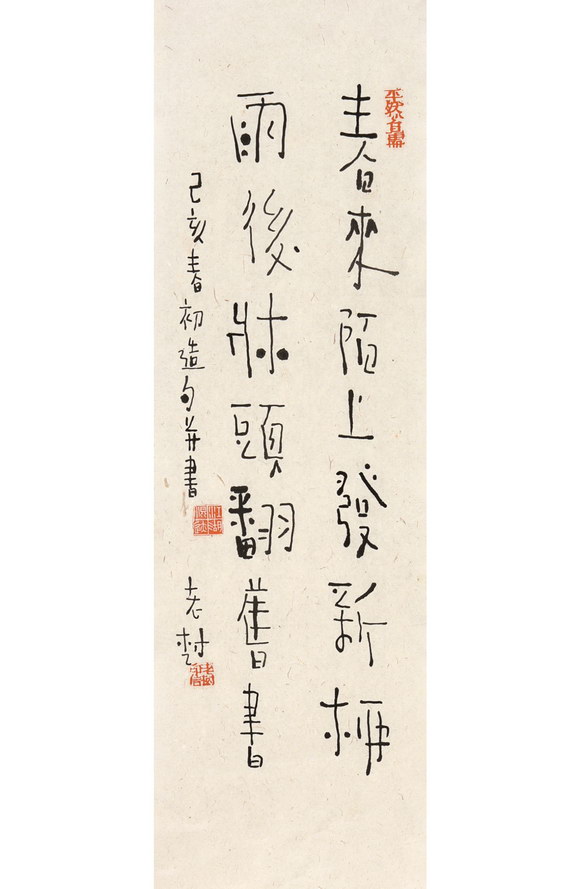 春來陌上發新桺
雨後牀頭翻舊書
己亥春初造句并書
老樹